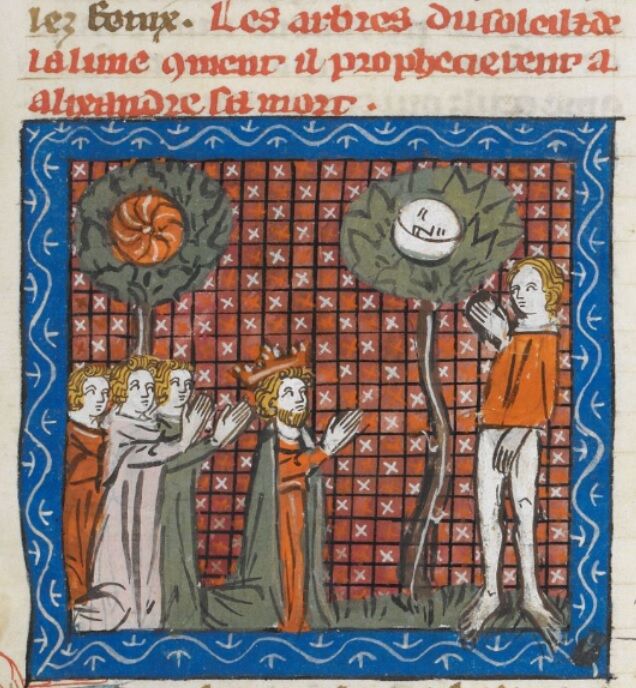 lez bouux. Les arbres du soleil ⁊ de
la lune 9ment il prophecierent a
alixandre sa mort.